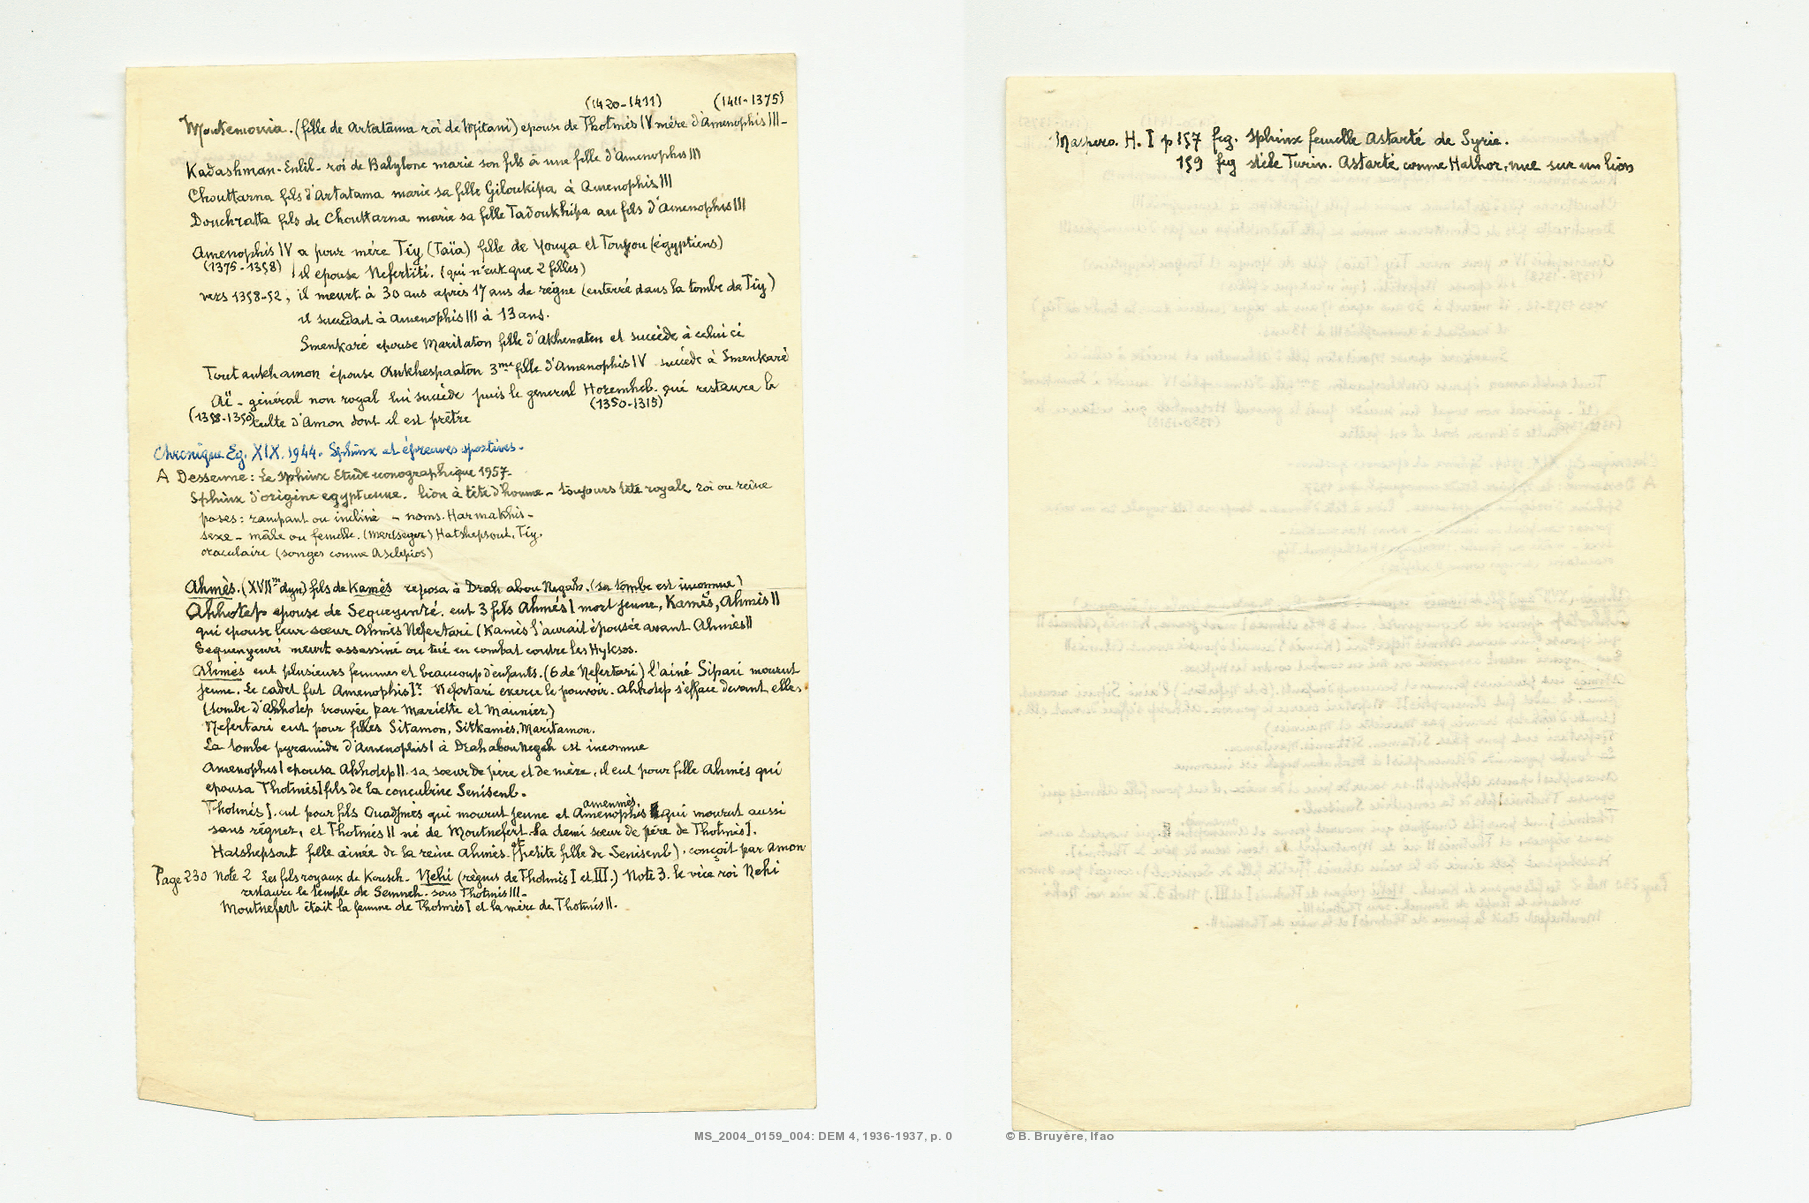 (1420-1411) (1411-1375)
Moutemouia. (fille de Artatama roi de Mitani) epouse de Thotmès IV mère d'Amenophis III-
Kadashman-Enlil- roi de Babylone marie son fils à une fille d'Amenophis III
Chouttarna fils d'Artatama marie sa fille Giloukipa à Amenophis III
Douchratta fils de Chouttarna marie sa fille Tadoukhipa au fils d'Amenophis III
Amenophis IV a pour mère Tiy (Taïa) fille de Youya et Touyou (égyptiens)
(1375-1358) il epouse Nefertiti. (qui n'eut que 2 filles)
vers 1358-52, il meurt à 30 ans après 17 ans de règne (enterré dans la tombe de Tiy)
il succedait à Amenophis III à 13 ans.
Smenkaré epouse Maritaton fille d'Akhenaten et succède à celui ci
Toutankhamon épouse Ankhespaaton 3me fille d'Amenophis IV succède à Smenkaré
Aï - général non royal lui succède puis le general Horemheb. qui restaura le
(1358-1350) culte d'Amon dont il est prêtre (1350-1315)
Chronique Eg. XIX. 1944. Sphinx et épreuves sportives-
A Dessenne: Le Sphinx Etude iconographique 1957-
Sphinx d'origine egyptienne. lion à tête d'homme - toujours tête royale roi ou reine
poses: rampant ou incliné - noms. Harmakhis-
sexe - mâle ou femelle. (Mertseger) Hatshepsout, Tiy.
oraculaire (songes comme Asclepios)
Ahmès. (XVIIme dyn) fils de Kamès reposa à Drah abou Negah. (sa tombe est inconnue)
Ahhotep epouse de Sequenenré. eut 3 fils Ahmès I mort jeune, Kamès, Ahmès II
qui epouse leur sœur Ahmès Nefertari (Kamès l'aurait épousée avant Ahmès II
Sequenenré meurt assassiné ou tué en combat contre les Hyksos.
Ahmès eut plusieurs femmes et beaucoup d'enfants. (6 de Nefertari) l'ainé Sipari mourut
jeune. Le cadet fut Amenophis Ir Nefertari exerce le pouvoir. Ahhotep s'efface devant elle.
(tombe d'Ahhotep trouvée par Mariette et Maunier)
Nefertari eut pour filles Sitamon, Sitkamès, Maritamon.
La tombe pyramide d'Amenophis I à Drah abou Negah est inconnue
Amenophis I epousa Ahhotep II sa sœur de père et de mère, il eut pour fille Ahmès qui
epousa Thotmès I fils de la concubine Senisenb.
Thotmès I. eut pour fils Ouadjmès qui mourut jeune et Amenophis amenmès. qui mourut aussi
sans régner, et Thotmès II né de Moutnefert. la demi sœur de père de Thotmès I.
Hatshepsout fille ainée de la reine Ahmès. (et petite fille de Senisenb). conçoit par Amon
Page 230 Note 2 Les fils royaux de Kousch. Nehi (règnes de Thotmès I et III.) Note 3. le vice roi Nehi
restaure le temple de Semneh. sous Thotmès III-
Moutnefert était la femme de Thotmès I et la mère de Thotmès II.
Maspero. H. I p 157 fig. Sphinx femelle Astarté de Syrie.
159 fig stèle Turin. Astarté comme Hathor, nue sur un lion
MS_2004_0159_004: DEM 4, 1936-1937, p. 0
© B. Bruyère, Ifao